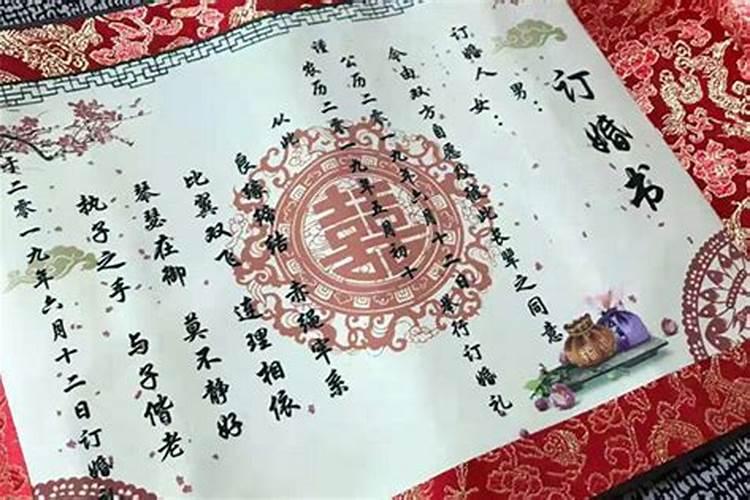 订婚书
男：
订婚人女：
今由双方自愿及 彼此长辈之同意
谨
公历二零一九年六月十二日举行订婚礼
农历二零一九年五月初十
从此
良缘缔结 赤绳牢系
比翼双飞 连理相依
琴瑟在御 莫不静好
执子之手 与子偕老
于二零一九年六月十二日订婚